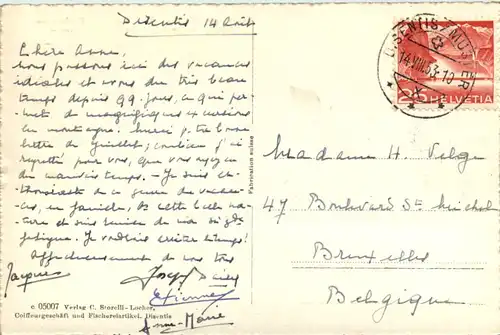 Disentis 14 Août
Chère Anne,
nous passons ici des vacances
idéales et avons du très beau
temps depuis qq. jours, ce qui per-
met de magnifiques excursions
en montagne. Merci p. ta bonne
lettre de Juillet; combien j'ai
regretté pour vous, que vous ayez eu
du mauvais temps. - Je suis en-
thousiaste de ce genre de vacan-
ces, en famille, de cette belle na-
ture et suis
Je voudrais
Affectueusement de vous tous
Jacques
Josef
Daisy
Etienne
Anne-Marie
c 05007 Verlag C. Storelli-Locher,
Coiffeurgeschäft und Fischereiartikel, Disentis
Fabrication suisse
DISENTIS/MUSTER
14.VIII.53-10
25 HELVETIA
Madame H. Velge
47 Boulevard St Michel
Bruxelles
Belgique